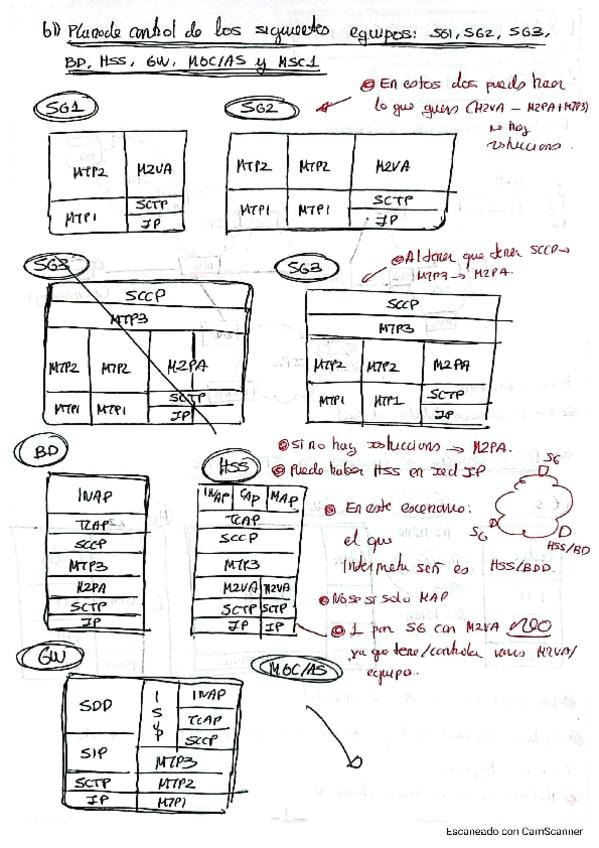 b)) Plano de control de los siguientes equipos: SG1, SG2, SG3,
BD, HSS, GW, MGC/AS y MSC1
SG1
SG2
En estos dos puedo hacer
lo que quiera (M2UA - M2PA+MTP3)
no hay
MTP2 M2UA
MTP1 SCTP
IP
MTP2 MTP2 M2UA
MTP1 MTP1 SCTP
IP
SG3
SCCP
MTP3
MTP2 MTP2 M2PA
MTP1 MTP1 SCTP
IP
SG3
Al tener que tener SCCP→
MTP3→ M2PA.
SCCP
MTP3
MTP2 MTP2 M2PA
MTP1 MTP1 SCTP
IP
Si no hay → M2PA.
Puede haber HSS en red IP
BD
INAP
TCAP
SCCP
MTP3
M2PA
SCTP
IP
HSS
INAP CAP MAP
TCAP
SCCP
MTP3
M2UA M2UA
SCTP SCTP
IP IP
En este escenario:
el que
interpreta será es HSS/BDD.
SG
SG
HSS/BD
No se si solo MAP
1 por SG con M2UA NEO
ya que tiene/controla varios M2UA/
equipo.
GW
SDD ISUP INAP
TCAP
SCCP
SIP MTP3
SCTP MTP2
IP MTP1
MGC/AS
Escaneado con CamScanner